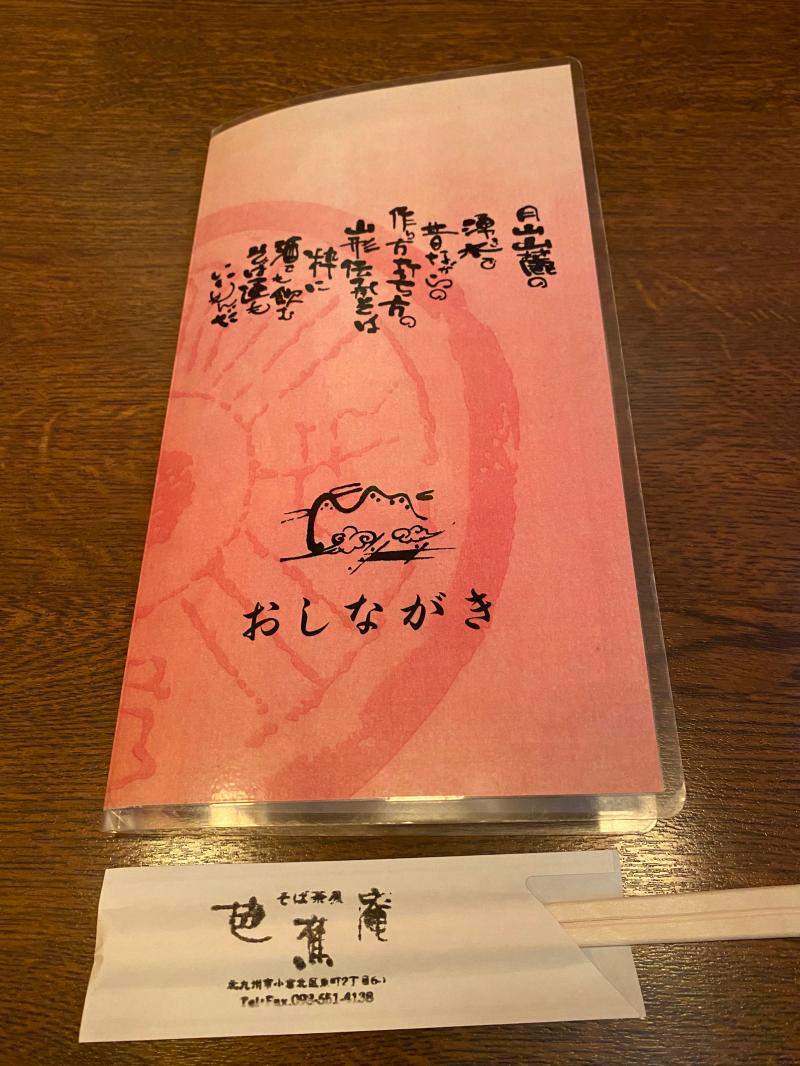 月山山麓の
湧き水の
昔ながらの
作り方打ち方の
山形伝承そば
粋に
酒でも飲む
そば屋も
いいもんだ
おしながき
そば茶屋
芭蕉庵
北九州市小倉北区魚町2丁目6-1
Tel・Fax.093-551-4138